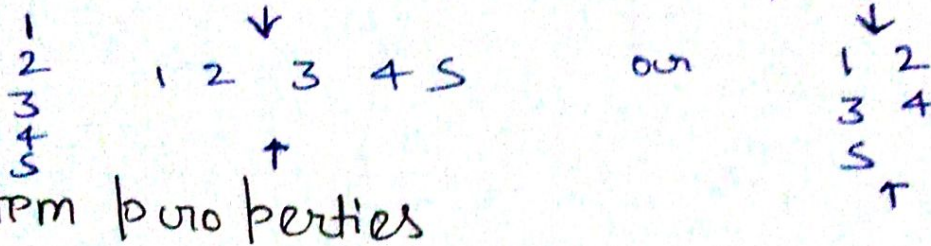 1
2
3
4
5
↓
1 2 3 4 5
↑
or
↓
1 2
3 4
5
↑
properties